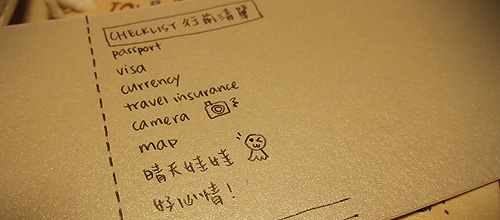 CHECKLIST 行前清單
passport
visa
currency
travel insurance
camera
map
晴天娃娃
好心情!